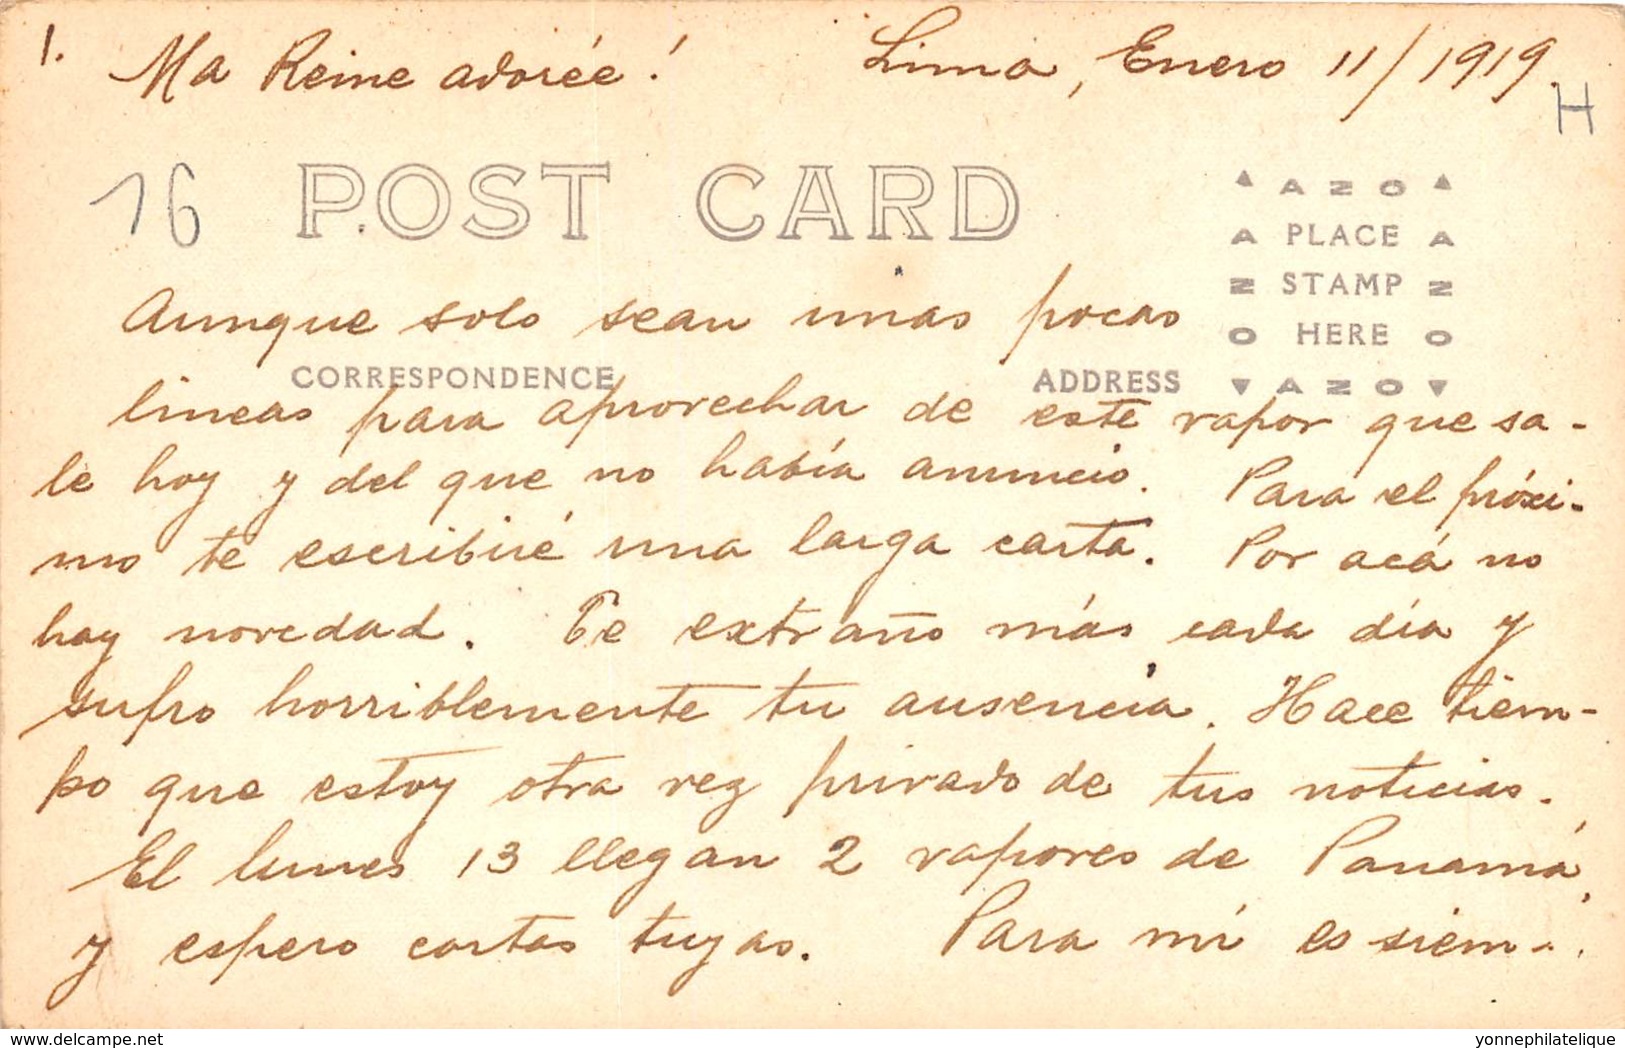 1. Ma Reine adorée! Lima, Enero 11/1919.
H
16 POST CARD
AZO
PLACE
STAMP
HERE
AZO
Aunque solo sean unas pocas
CORRESPONDENCE ADDRESS
lineas para aprovechar de este vapor que sa-
le hoy y del que no había anuncio. Para el próxi-
mo te escribiré una larga carta. Por acá no
hay novedad. Te extraño más cada día y
sufro horriblemente tu ausencia. Hace tiem-
po que estoy otra vez privado de tus noticias.
El lunes 13 llegan 2 vapores de Panamá,
y espero cartas tuyas. Para mí es siem-
delcampe.net yonnephilatelique